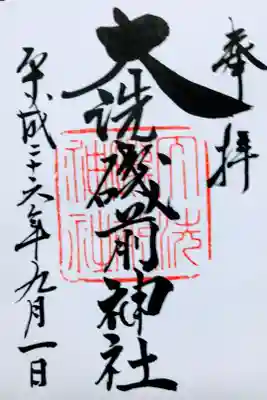 奉拝
大洗磯前神社
平成二十六年九月一日
大洗
磯前
神社